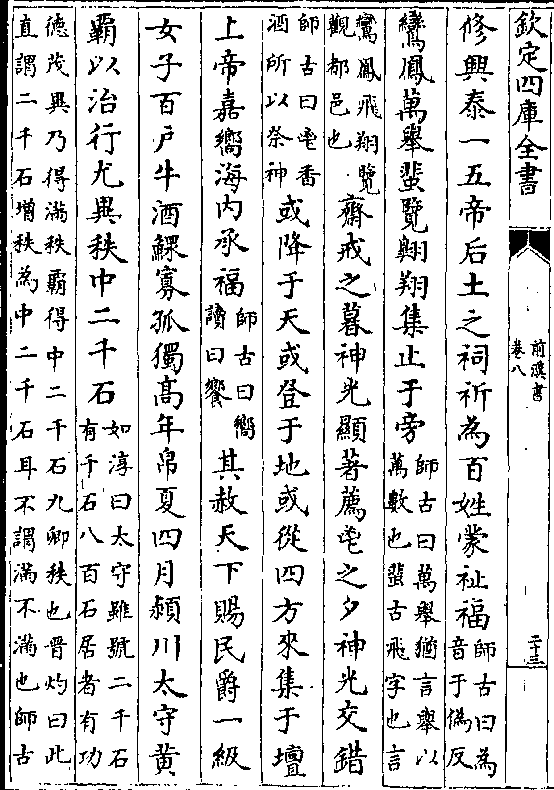 欽定四庫全書
前漢書
卷八
二十三
修興泰一五帝后土之祠祈為百姓蒙祉福
師古曰為
音于偽反
鸞鳳萬舉蜚覽翺翔集止于旁
師古曰萬舉猶言舉以
萬數也蜚古飛字也言
鸞鳳飛翔覽
觀都邑也
齋戒之暮神光顯著薦鬯之夕神光交錯
師古曰鬯香
酒所以祭神
或降于天或登于地或從四方來集于壇
上帝嘉嚮海内承福
師古曰嚮
讀曰饗
其赦天下賜民爵一級
女子百戶牛酒鰥寡孤獨高年帛夏四月潁川太守黄
霸以治行尤異秩中二千石
如淳曰太守雖號二千石
有千石八百石居者有功
德茂異乃得滿秩霸得中二千石九卿秩也晋灼曰此
直謂二千石增秩為中二千石耳不謂滿不滿也師古